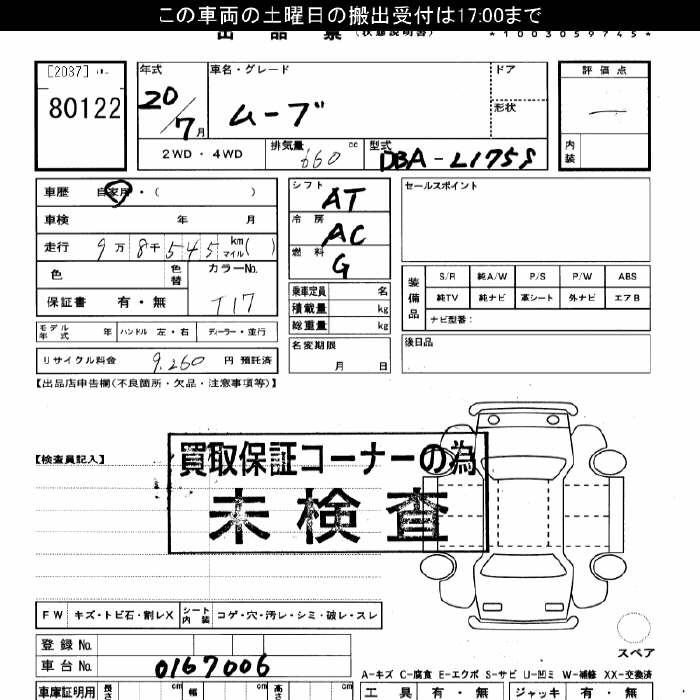 この車両の土曜日の搬出受付は17:00まで
出品票 (状態説明書) *1003059745*
[2037]
80122
年式 車名・グレード ドア 評価点
20/7月 ムーブ 形状
2WD・4WD 排気量 660 cc 型式 DBA-L175S 内装
車歴 自家用・( )
車検 年 月
走行 9万8千545 km マイル( )
色 色替 カラーNo.
保証書 有・無 T17
モデル年式 年 ハンドル 左・右 ディーラー・並行
リサイクル料金 9.260 円 預託済
シフト AT
冷房 AC
燃料 G
乗車定員 名
積載量 kg
総重量 kg
名変期限
月 日
セールスポイント
装備品 S/R 純A/W P/S P/W ABS
純TV 純ナビ 革シート 外ナビ エアB
ナビ型番:
後日品
【出品店申告欄(不良箇所・欠品・注意事項等)】
【検査員記入】
買取保証コーナーの為
未検査
FW キズ・トビ石・割レX シート内装 コゲ・穴・汚レ・シミ・破レ・スレ
登録No.
車台No. 0167006
スペア
A-キズ C-腐食 E-エクボ S-サビ U-凹ミ W-補修 XX-交換済
車庫証明用 長さ cm 幅 cm 高さ cm 工具 有・無 ジャッキ 有・無